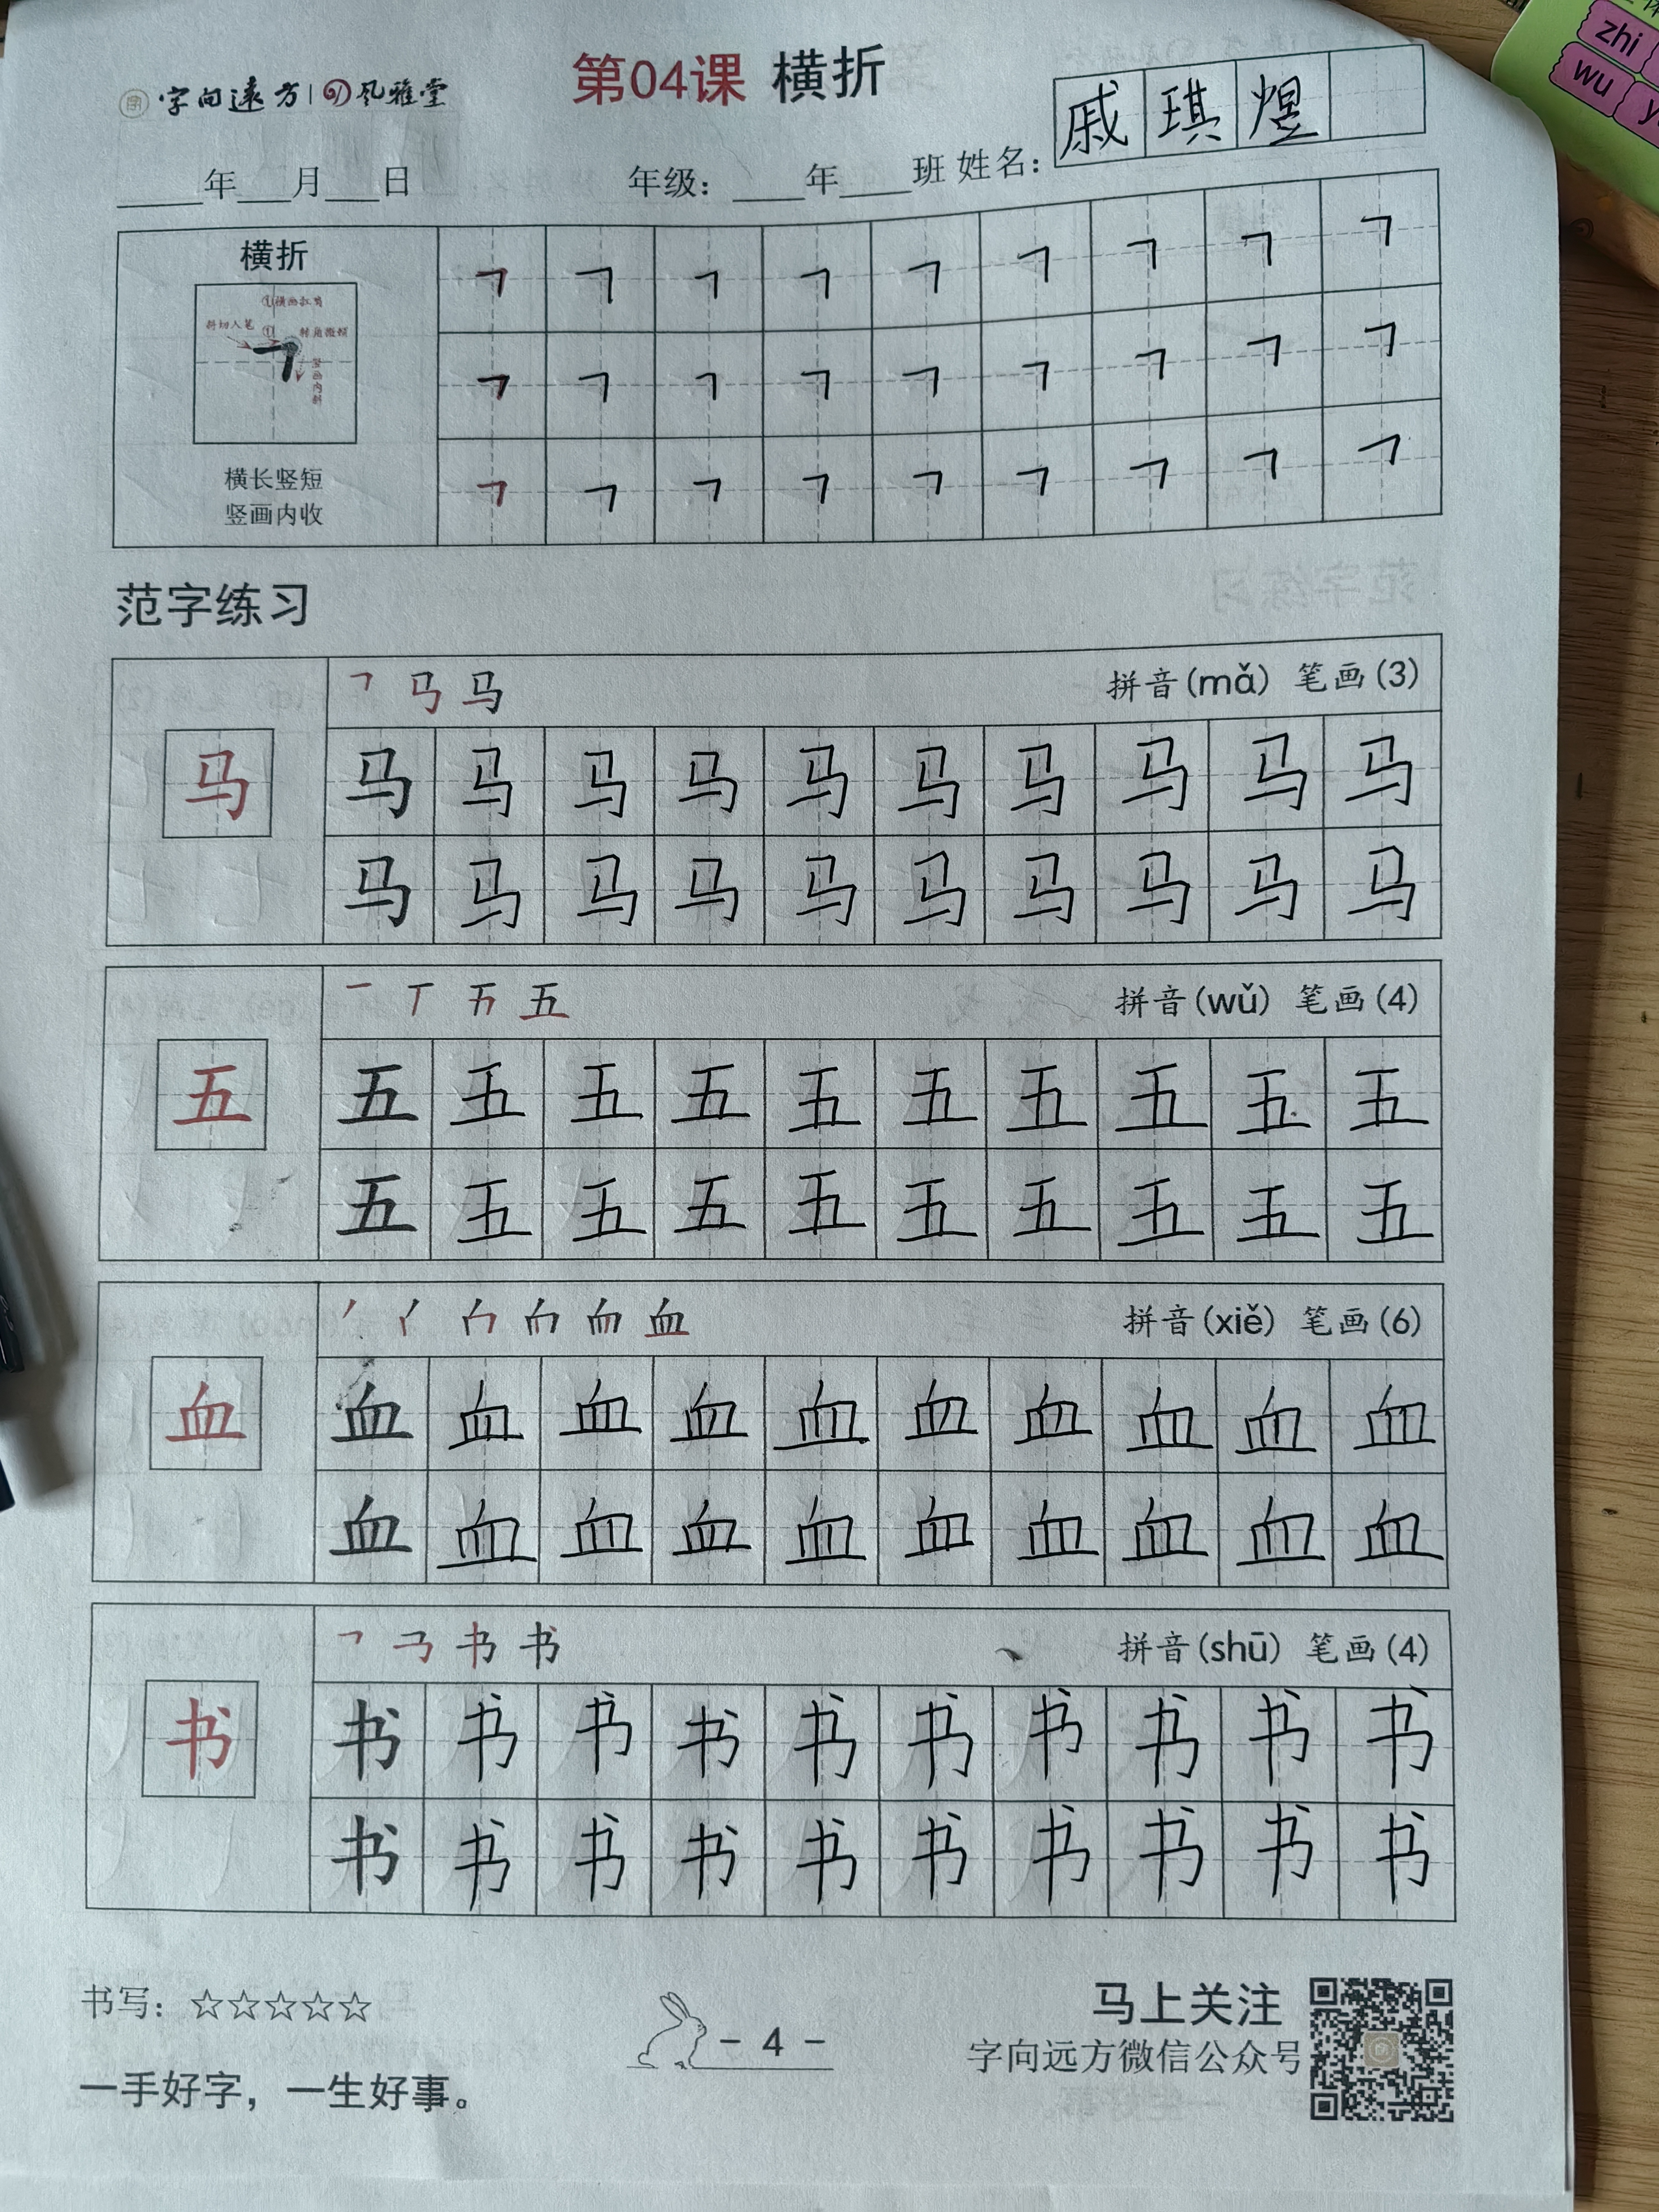 zhi
wu
字向远方 风雅堂
第04课 横折
戚琪煜
年 月 日 年级: 年 班 姓名:
横折
①横画扛肩
斜切入笔
①
转角微顿
竖画内斜
横长竖短
竖画内收
范字练习
拼音(mǎ) 笔画(3)
马 马 马 马 马 马 马 马 马 马 马
马 马 马 马 马 马 马 马 马 马
拼音(wǔ) 笔画(4)
五 五 五 五 五 五 五 五 五 五 五
五 五 五 五 五 五 五 五 五 五
拼音(xiě) 笔画(6)
血 血 血 血 血 血 血 血 血 血 血
血 血 血 血 血 血 血 血 血 血
拼音(shū) 笔画(4)
书 书 书 书 书 书 书 书 书 书 书
书 书 书 书 书 书 书 书 书 书
书写: ☆☆☆☆☆
- 4 -
马上关注
字向远方微信公众号
一手好字，一生好事。